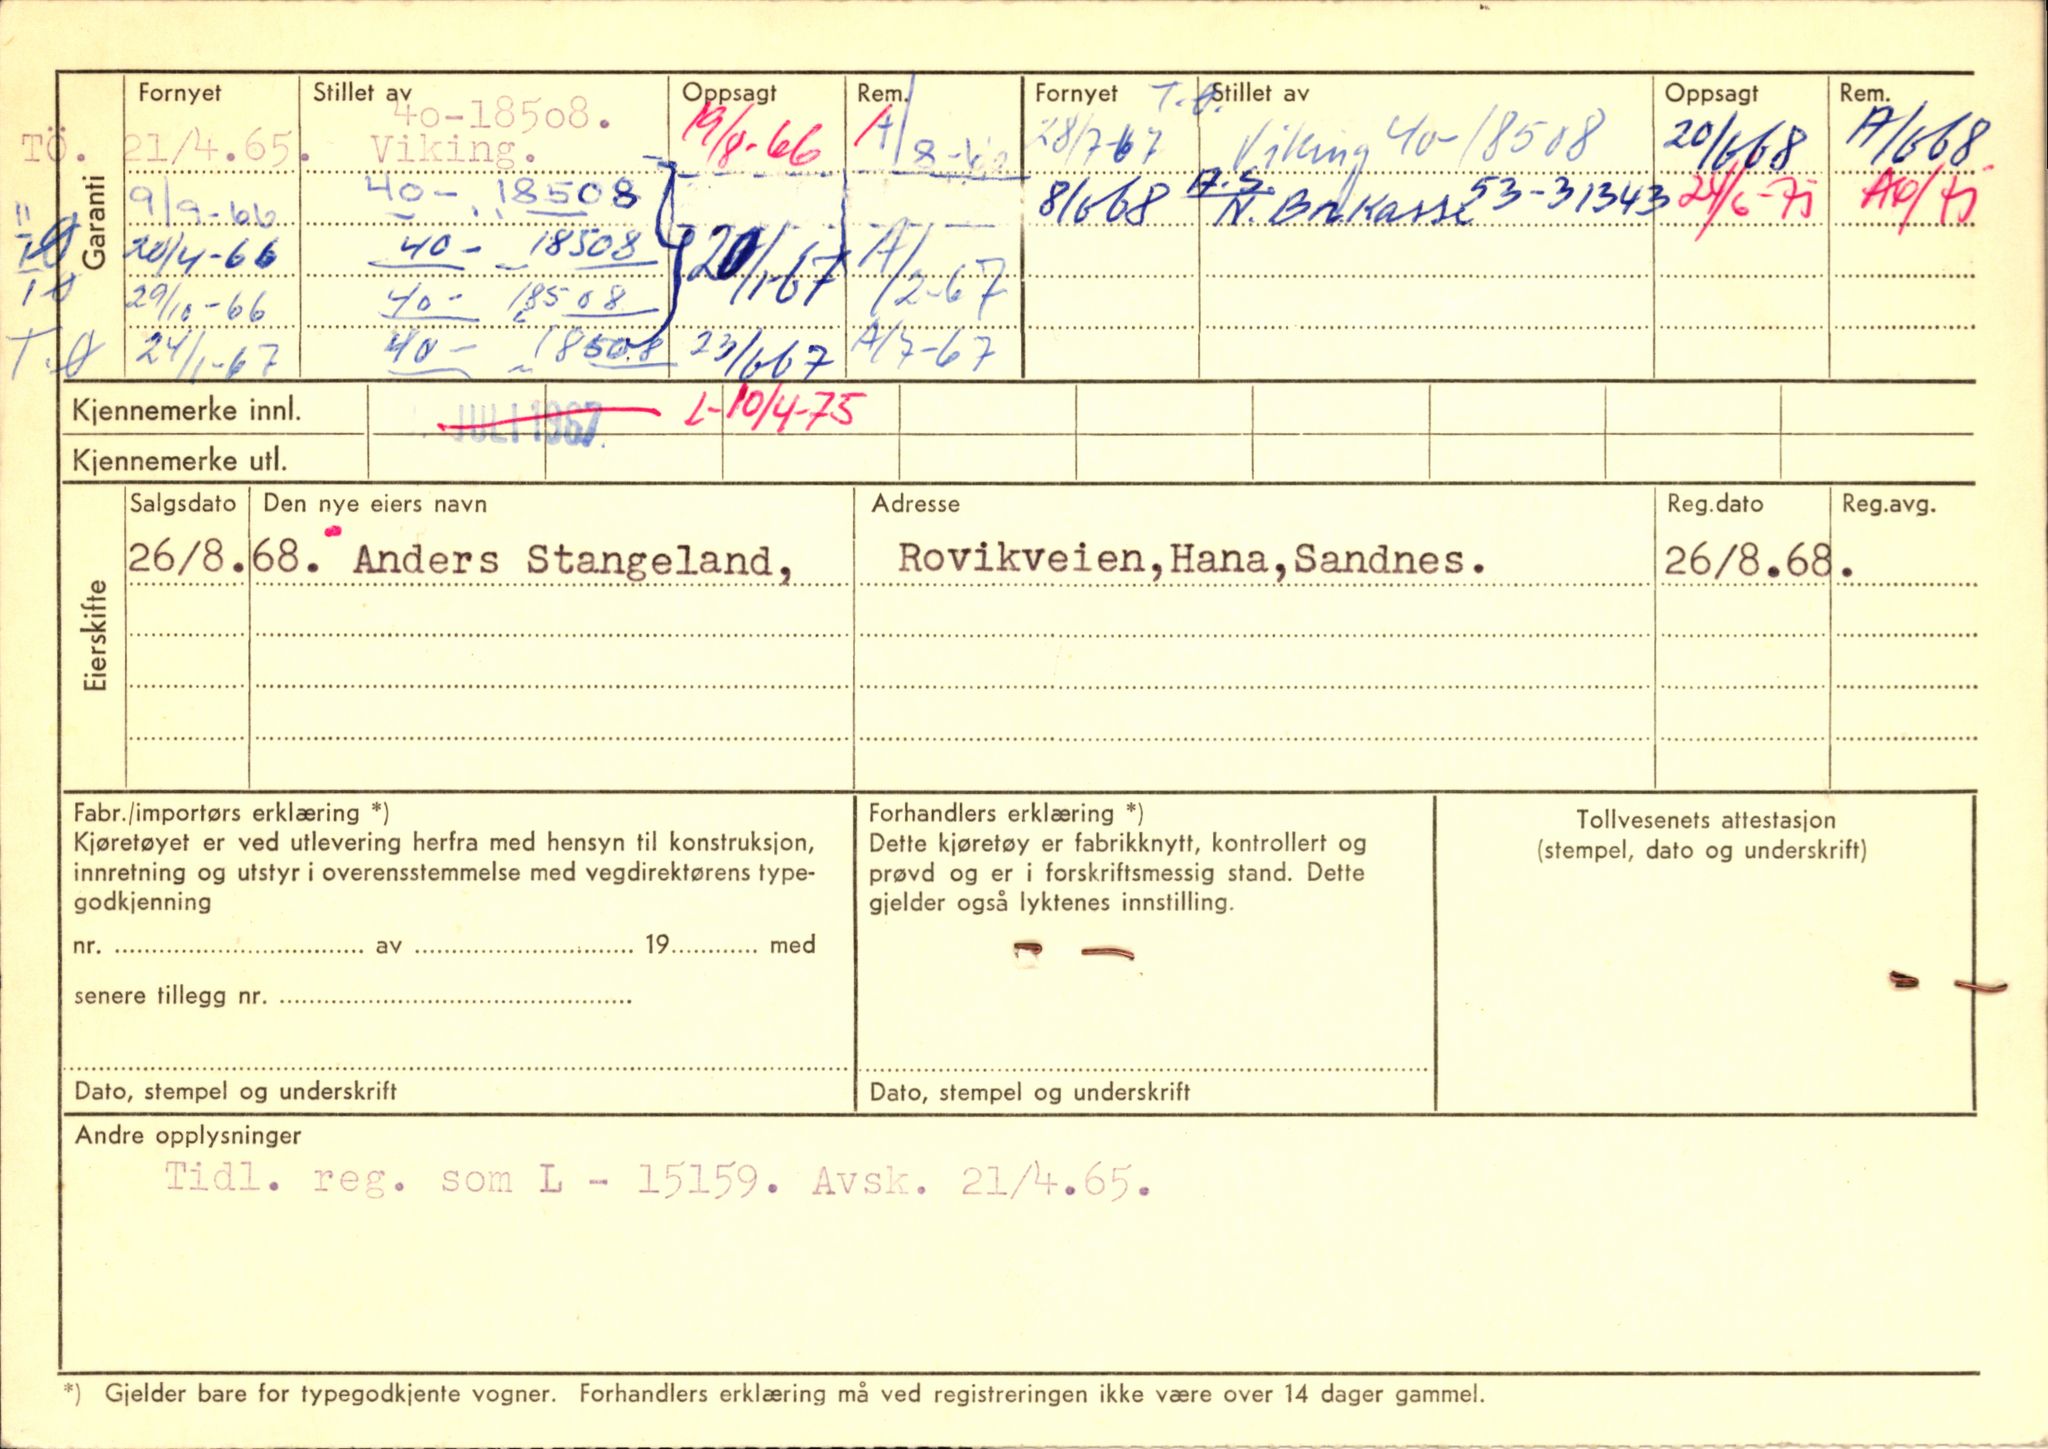 Fornyet Stillet av Oppsagt Rem. Fornyet T.Ø. Stillet av Oppsagt Rem.
40-18508.
TÖ. 21/4.65. Viking. 19/8-66 A/8-66 28/7-67 Viking 40-18508 20/6 68 A/6 68
Garanti
" 9/9-66 40-18508 8/6 68 A.S. N. Brikasse 53-31343 24/6-75 A6/75
TØ 20/4-66 40-18508 20/1-67 A/2-67
TØ 29/10-66 40-18508
T.Ø 24/1-67 40-18508 23/6 67 A/7-67
Kjennemerke innl. JULI 1967. L-10/4-75
Kjennemerke utl.
Eierskifte
Salgsdato Den nye eiers navn Adresse Reg.dato Reg.avg.
26/8.68. Anders Stangeland, Rovikveien,Hana,Sandnes. 26/8.68.
Fabr./importørs erklæring *)
Kjøretøyet er ved utlevering herfra med hensyn til konstruksjon,
innretning og utstyr i overensstemmelse med vegdirektørens type-
godkjenning
nr. .......... av .......... 19.......... med
senere tillegg nr. ..........
Dato, stempel og underskrift
Forhandlers erklæring *)
Dette kjøretøy er fabrikknytt, kontrollert og
prøvd og er i forskriftsmessig stand. Dette
gjelder også lyktenes innstilling.
Dato, stempel og underskrift
Tollvesenets attestasjon
(stempel, dato og underskrift)
Andre opplysninger
Tidl. reg. som L - 15159. Avsk. 21/4.65.
*) Gjelder bare for typegodkjente vogner. Forhandlers erklæring må ved registreringen ikke være over 14 dager gammel.